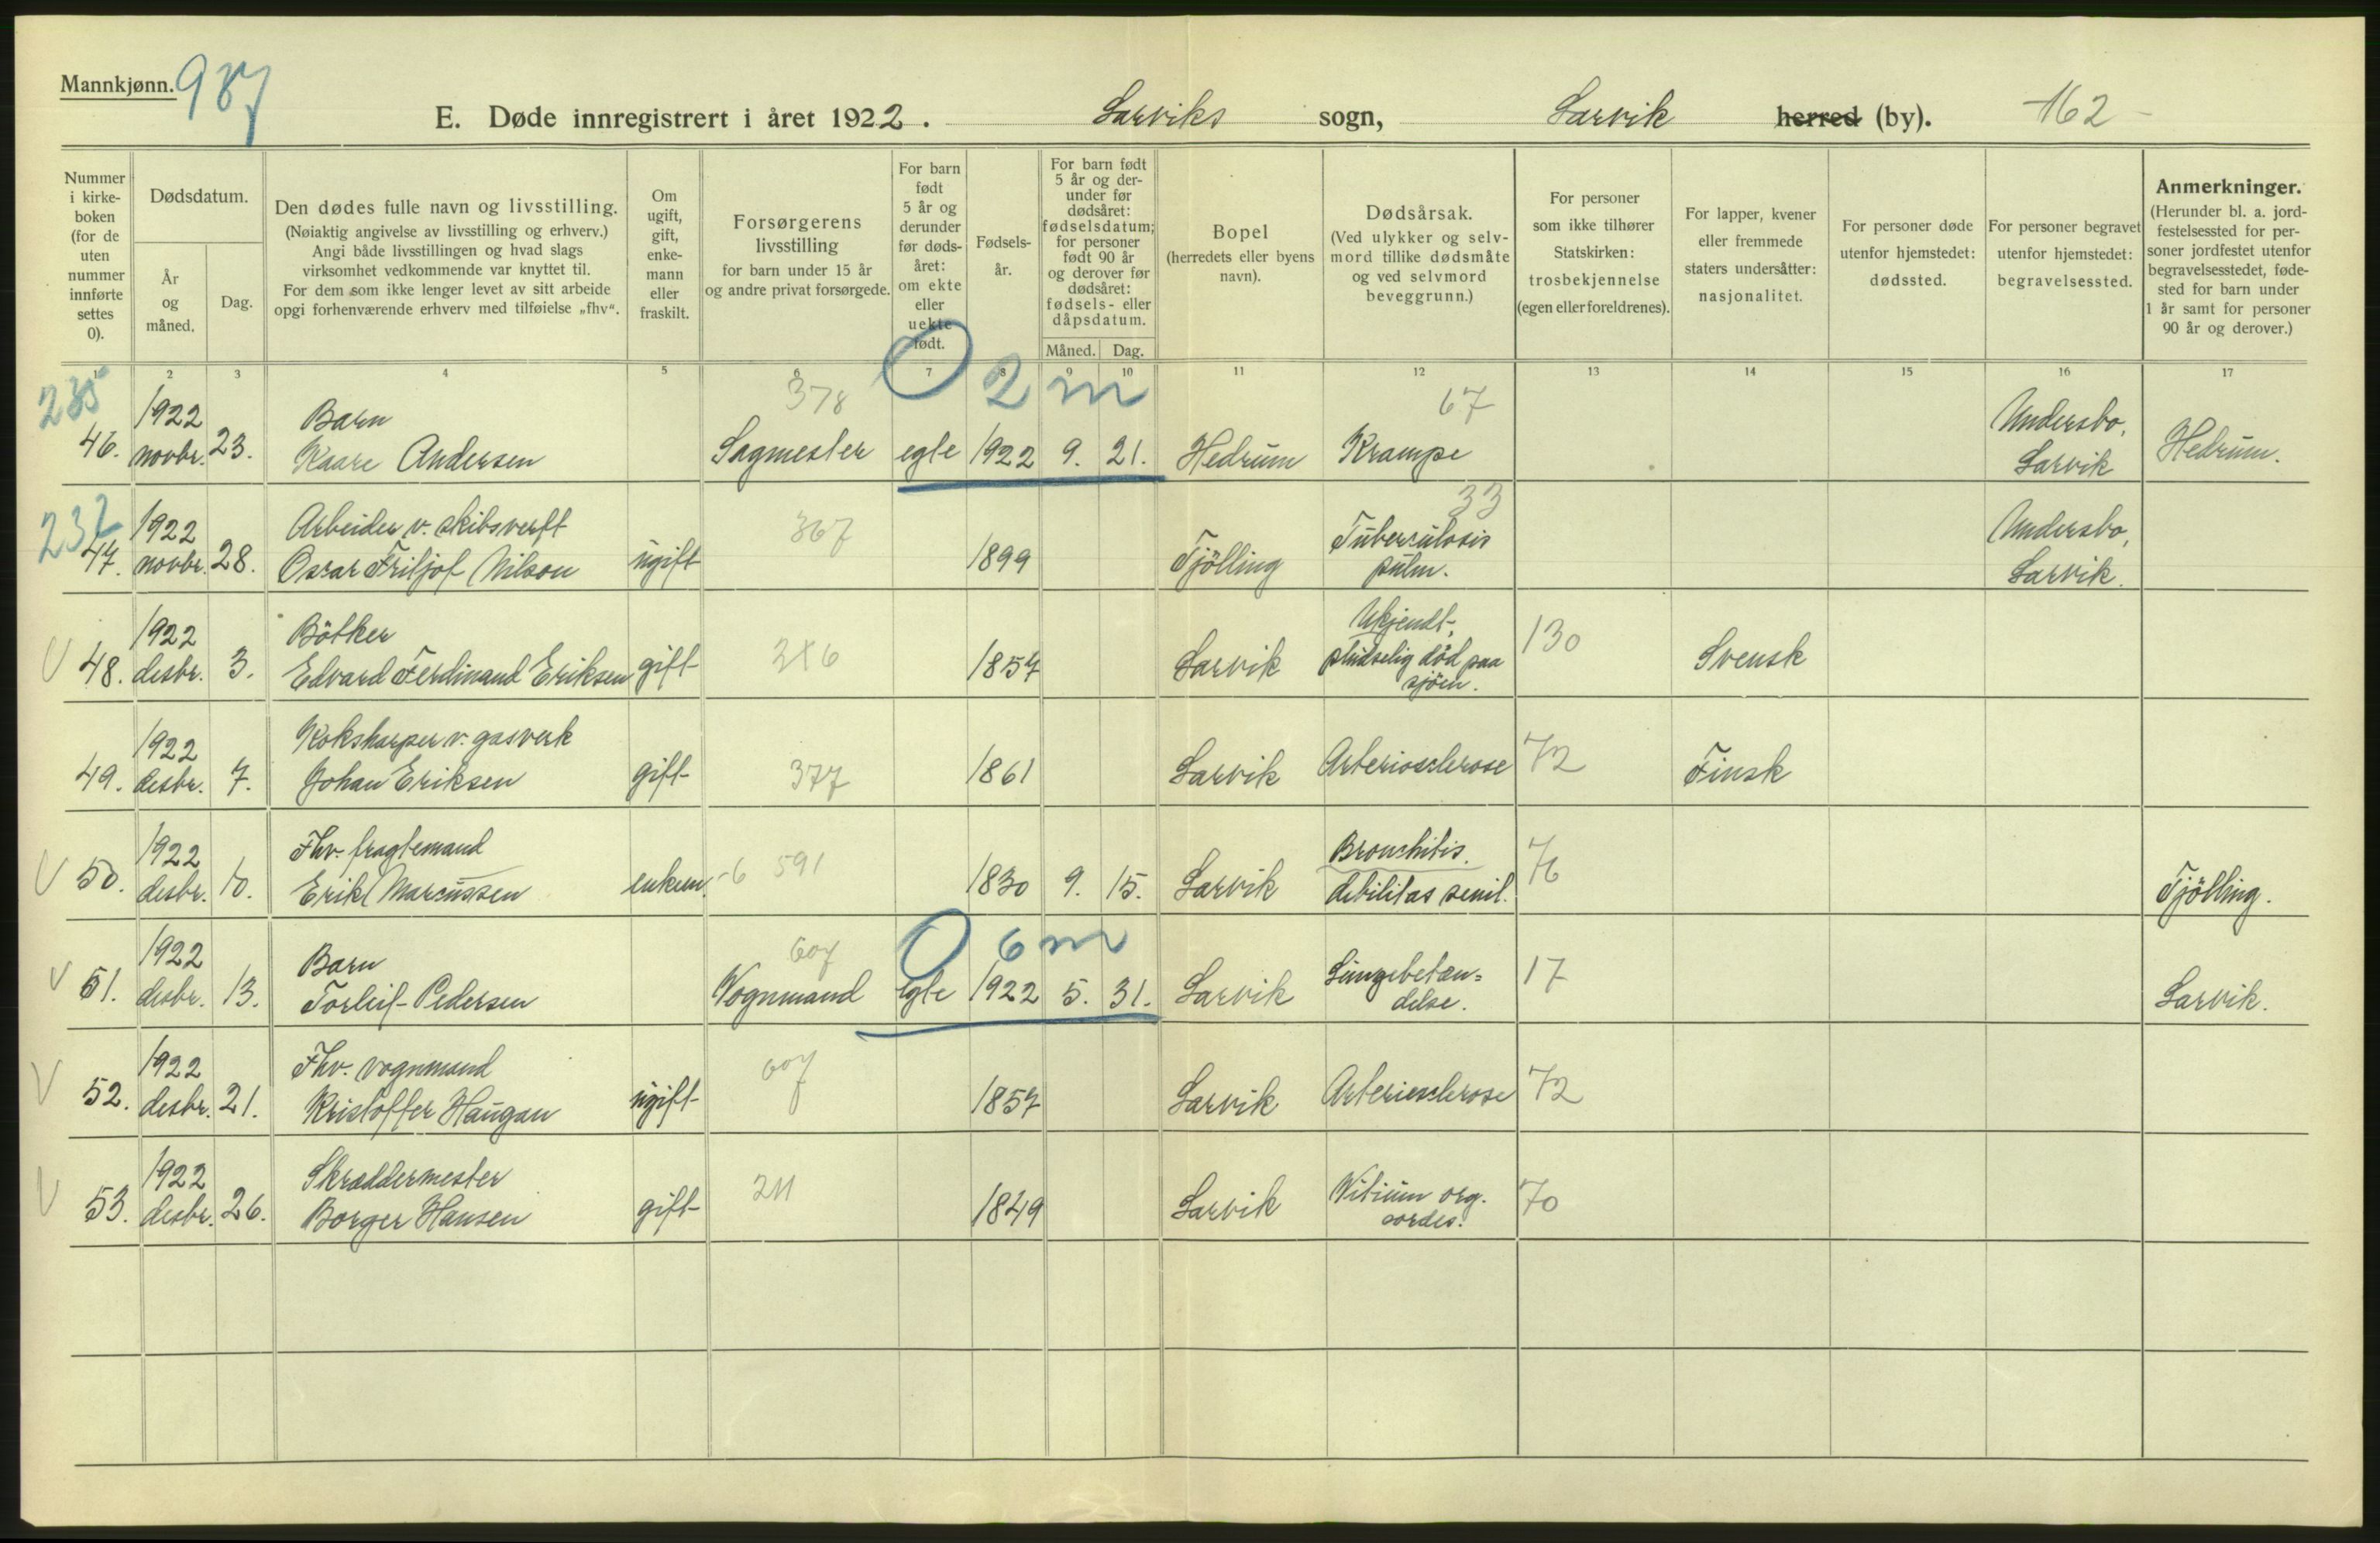 Mannkjønn. 987
E. Døde innregistrert i året 1922. Larviks sogn, Larvik herred (by). 162
Nummer i kirkeboken (for de uten nummer innførte settes 0).
Dødsdatum.
År og måned.
Dag.
Den dødes fulle navn og livsstilling.
(Nøiaktig angivelse av livsstilling og erhverv.)
Angi både livsstillingen og hvad slags
virksomhet vedkommende var knyttet til.
For dem som ikke lenger levet av sitt arbeide
opgi forhenværende erhverv med tilføielse „fhv“.
Om ugift, gift, enkemann eller fraskilt.
Forsørgerens livsstilling
for barn under 15 år
og andre privat forsørgede.
For barn født 5 år og derunder før dødsåret: om ekte eller uekte født.
Fødselsår.
For barn født 5 år og derunder før dødsåret: fødselsdatum; for personer født 90 år og derover før dødsåret: fødsels- eller dåpsdatum.
Måned. Dag.
Bopel
(herredets eller byens navn).
Dødsårsak.
(Ved ulykker og selvmord tillike dødsmåte og ved selvmord beveggrunn.)
For personer som ikke tilhører Statskirken: trosbekjennelse
(egen eller foreldrenes).
For lapper, kvener eller fremmede staters undersåtter: nasjonalitet.
For personer døde utenfor hjemstedet: dødssted.
For personer begravet utenfor hjemstedet: begravelsessted.
Anmerkninger.
(Herunder bl. a. jordfestelsessted for personer jordfestet utenfor begravelsesstedet, fødested for barn under 1 år samt for personer 90 år og derover.)
1 2 3 4 5 6 7 8 9 10 11 12 13 14 15 16 17
235 1922 Barn 378 0 2 m 67 Undersbo,
46. novbr. 23. Kaare Andersen Sagmester egte 1922 9. 21. Hedrum Krampe Larvik Hedrum.
232 1922 Arbeider v. skibsverft 367 Tuberculosis 33 Undersbo,
47. novbr. 28. Oscar Fritjof Nilson ugift 1899 Tjölling pulm. Larvik.
1922 Bötker Ukjendt,
V 48. desbr. 3. Edvard Ferdinand Eriksen gift 1857 Larvik pludselig död paa 130 Svensk
sjöen.
1922 Kokskarper v. gasverk
49. desbr. 7. Johan Eriksen gift 377 1861 Larvik Arteriosclerose 72 Finsk
1922 Fhv. fragtemand 591 Bronchitis.
V 50. desbr. 10. Erik Marcussen enkem. -6 1830 9. 15. Larvik debilitas senil. 76 Tjölling.
1922 Barn 607 0 6 m
V 51. desbr. 13. Torleif Pedersen Vognmand Egte 1922 5. 31. Larvik Lungebetæn= 17 Larvik.
delse.
1922 Fhv. vognmand 607
V 52. desbr. 21. Kristoffer Haugan ugift 1857 Larvik Arteriesclerose 72
1922 Skræddermester 211 Vitium org.
V 53. desbr. 26. Borger Hansen gift 1849 Larvik cordis. 70